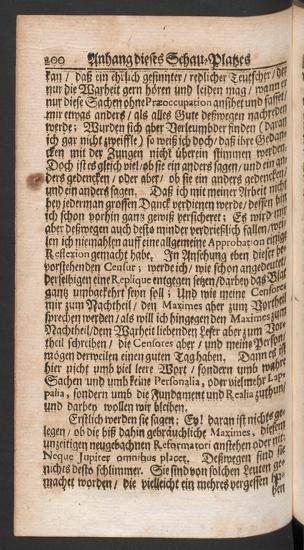 200 Anhang dieses Schau-Platzes
kan / daß ein ehrlich gesinnter / redlicher Teutscher / der
nur die Warheit gern hören und leiden mag / wann er
nur diese Sachen ohne Præoccupation ansihet und fasset /
mir etwas anders / als alles Gute deßwegen nachreden
werde; Wurden sich aber Verleumbder finden (daran
ich gar nicht zweiffle) so weiß ich doch / daß ihre Gedan-
cken mit der Zungen nicht überein stimmen werden.
Doch ist es gleich viel / ob sie ein anders sagen / und ein an-
ders gedencken / oder aber / ob sie ein anders gedencken
und ein anders sagen. Daß ich mit meiner Arbeit nicht
bey jederman grossen Danck verdienen werde / dessen bin
ich schon vorhin gantz gewiß versichert; Es wird mir
aber deßwegen auch desto minder verdrießlich fallen / wei-
len ich niemahlen auff eine allgemeine Approbation einige
Reflexion gemacht habe. In Ansehung eben dieser be-
vorstehenden Censur; werde ich / wie schon angedeutet /
derselbigen eine Replique entgegen setzen / darbey das Blat
gantz umbgekehrt seyn soll; Und wie meine Censores
mir zum Nachtheil / den Maximes aber zum Vortheil
sprechen werden / als will ich hingegen den Maximes zum
Nachtheil / dem Warheit liebenden Leser aber zum Vor-
theil schreiben / die Censores aber / und meine Person /
mögen derweilen einen guten Tag haben. Dann es ist
hier nicht umb viel leere Wort / sondern umb wahre
Sachen und umb keine Personalia, oder vielmehr Lap-
palia, sondern umb die Fundament und Realia zuthun /
und darbey wollen wir bleiben.
Erstlich werden sie sagen; Ey! daran ist nichts ge-
legen / ob die biß dahin gebräuchliche Maximes, diesem
unzeitigen neugebachnen Reformatori anstehen oder nit:
Neque Jupiter omnibus placet. Deßwegen sind sie
nichts desto schlimmer. Sie sind von solchen Leuten ge-
macht worden / die vielleicht ein mehres vergessen ha-
ben